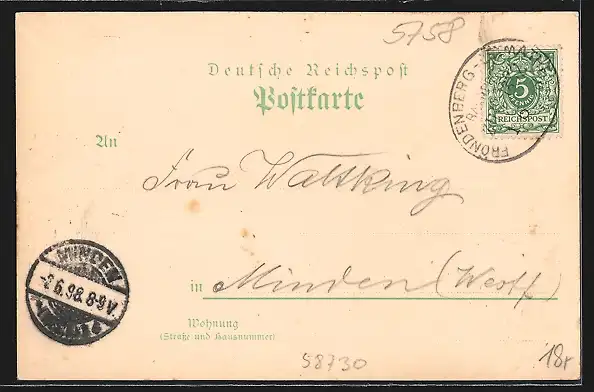 5758
Deutsche Reichspost
Postkarte
5
REICHSPOST
FRÖNDENBERG-
An
Frau Waltking
MINDEN
-2.6.98.8-9V.
in Minden (Westf)
Wohnung
(Straße und Hausnummer)
58730
18r